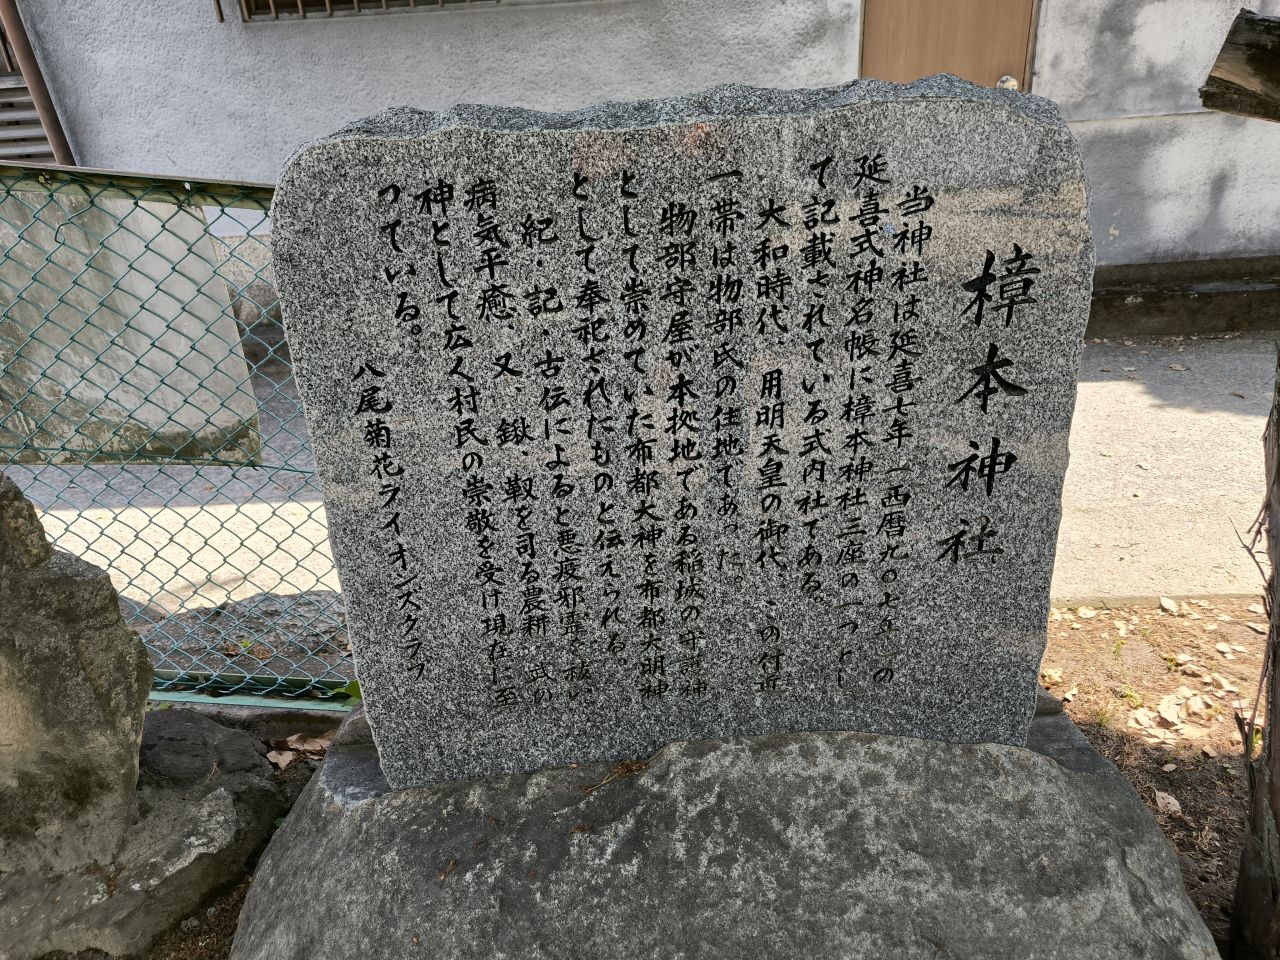 樟本神社
当神社は延喜七年(西暦九〇七年)の
延喜式神名帳に樟本神社三座の一つとし
て記載されている式内社である。
大和時代、用明天皇の御代、この付近
一帯は物部氏の住地であった。
物部守屋が本拠地である稲城の守護神
として崇めていた布都大神を布都大明神
として奉祀されたものと伝えられる。
紀・記・古伝によると悪疫邪霊を祓い
病気平癒、又、鍬、靱を司る農耕、武の
神として広く村民の崇敬を受け現在に至
つている。
八尾菊花ライオンズクラブ